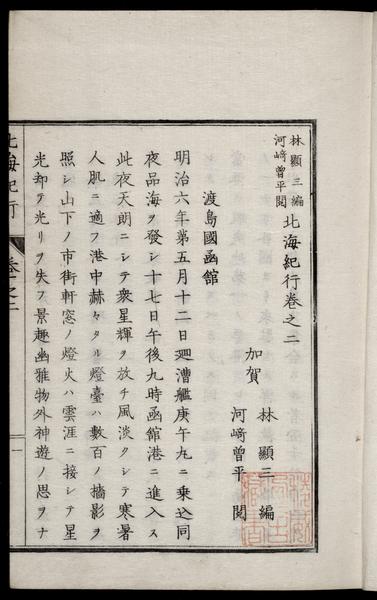 林顯三編
河﨑曾平閱
北海紀行卷之二
加賀 林顯三 編
河﨑曾平 閱
渡島國函館
明治六年第五月十二日廻漕艦庚午丸ニ乗込同
夜品海ヲ發シ十七日午後九時函館港ニ進入ス
此夜天朗ニシテ衆星輝ヲ放チ風淡クシテ寒暑
人肌ニ適フ港中赫々タル燈臺ハ數百ノ檣影ヲ
照シ山下ノ市街軒窓ノ燈火ハ雲涯ニ接シテ星
光却テ光リヲ失フ景趣幽雅物外神遊ノ思ヲナ
北海紀行 卷之二 一